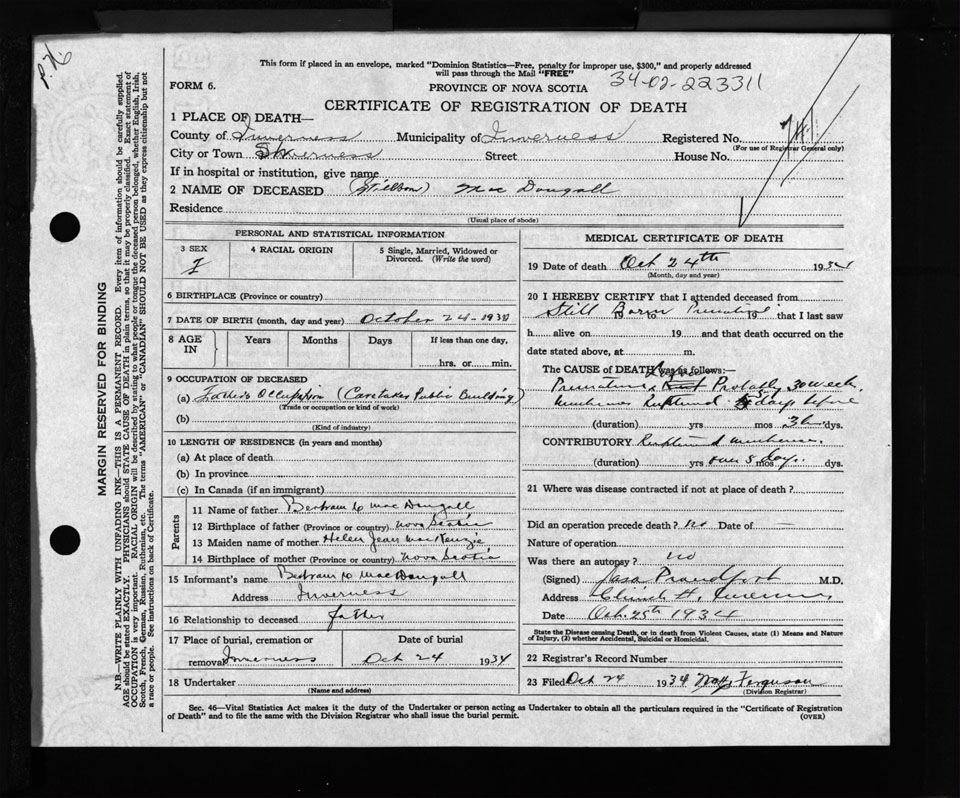 P.N.
This form if placed in an envelope, marked "Dominion Statistics—Free, penalty for improper use, $300," and properly addressed
will pass through the Mail "FREE"
34-02-223311
FORM 6.
PROVINCE OF NOVA SCOTIA
CERTIFICATE OF REGISTRATION OF DEATH
1 PLACE OF DEATH—
County of Inverness Municipality of Inverness Registered No.
(For use of Registrar General only)
City or Town Inverness Street House No.
If in hospital or institution, give name
2 NAME OF DECEASED (Stillborn) Mac Dougall
Residence
(Usual place of abode)
PERSONAL AND STATISTICAL INFORMATION
3 SEX 4 RACIAL ORIGIN 5 Single, Married, Widowed or
Divorced. (Write the word)
F
6 BIRTHPLACE (Province or country)
7 DATE OF BIRTH (month, day and year) October 24-1934
8 AGE
IN
Years Months Days If less than one day,
hrs. or min.
9 OCCUPATION OF DECEASED
(a) Father's Occupation (Caretaker Public Building)
(Trade or occupation or kind of work)
(b)
(Kind of industry)
10 LENGTH OF RESIDENCE (in years and months)
(a) At place of death
(b) In province
(c) In Canada (if an immigrant)
Parents
11 Name of father Bertram C MacDougall
12 Birthplace of father (Province or country) Nova Scotia
13 Maiden name of mother Helen Jean MacKenzie
14 Birthplace of mother (Province or country) Nova Scotia
15 Informant's name Bertram C MacDougall
Address Inverness
16 Relationship to deceased father
17 Place of burial, cremation or Date of burial
removal Inverness Oct 24 1934
18 Undertaker
(Name and address)
MEDICAL CERTIFICATE OF DEATH
19 Date of death Oct 24th 1934
(Month, day and year)
20 I HEREBY CERTIFY that I attended deceased from
Still Born 19 to Premature 19 that I last saw
h alive on 19 and that death occurred on
date stated above, at m.
The CAUSE OF DEATH was as follows:—
Premature Probably 30 weeks
Ruptured days before
(duration) yrs mos dys.
CONTRIBUTORY Rupture of
(duration) yrs over 8 mos days. dys.
21 Where was disease contracted if not at place of death?
Did an operation precede death? no Date of —
Nature of operation
Was there an autopsy? no
(Signed) M.D.
Address Inverness
Date Oct. 25th 1934
State the Disease causing Death, or in death from Violent Causes, state (1) Means and Nature
of Injury, (2) whether Accidental, Suicidal or Homicidal.
22 Registrar's Record Number
23 Filed Oct 24 1934 Ferguson
(Division Registrar)
Sec. 46—Vital Statistics Act makes it the duty of the Undertaker or person acting as Undertaker to obtain all the particulars required in the "Certificate of Registration
of Death" and to file the same with the Division Registrar who shall issue the burial permit.
(OVER)
MARGIN RESERVED FOR BINDING
N.B.—WRITE PLAINLY WITH UNFADING INK—THIS IS A PERMANENT RECORD. Every item of information should be carefully supplied.
AGE should be stated EXACTLY. PHYSICIANS should STATE CAUSE OF DEATH in plain terms, so that it may be properly classified. Exact statement of
OCCUPATION is very important. RACIAL ORIGIN will be described by stating to what people or tongue the deceased person belonged, whether English, Irish,
Scotch, French, German, Russian, Ruthenian, etc. The terms "AMERICAN" or "CANADIAN" SHOULD NOT BE USED as they express citizenship but not
a race or people. See instructions on back of Certificate.